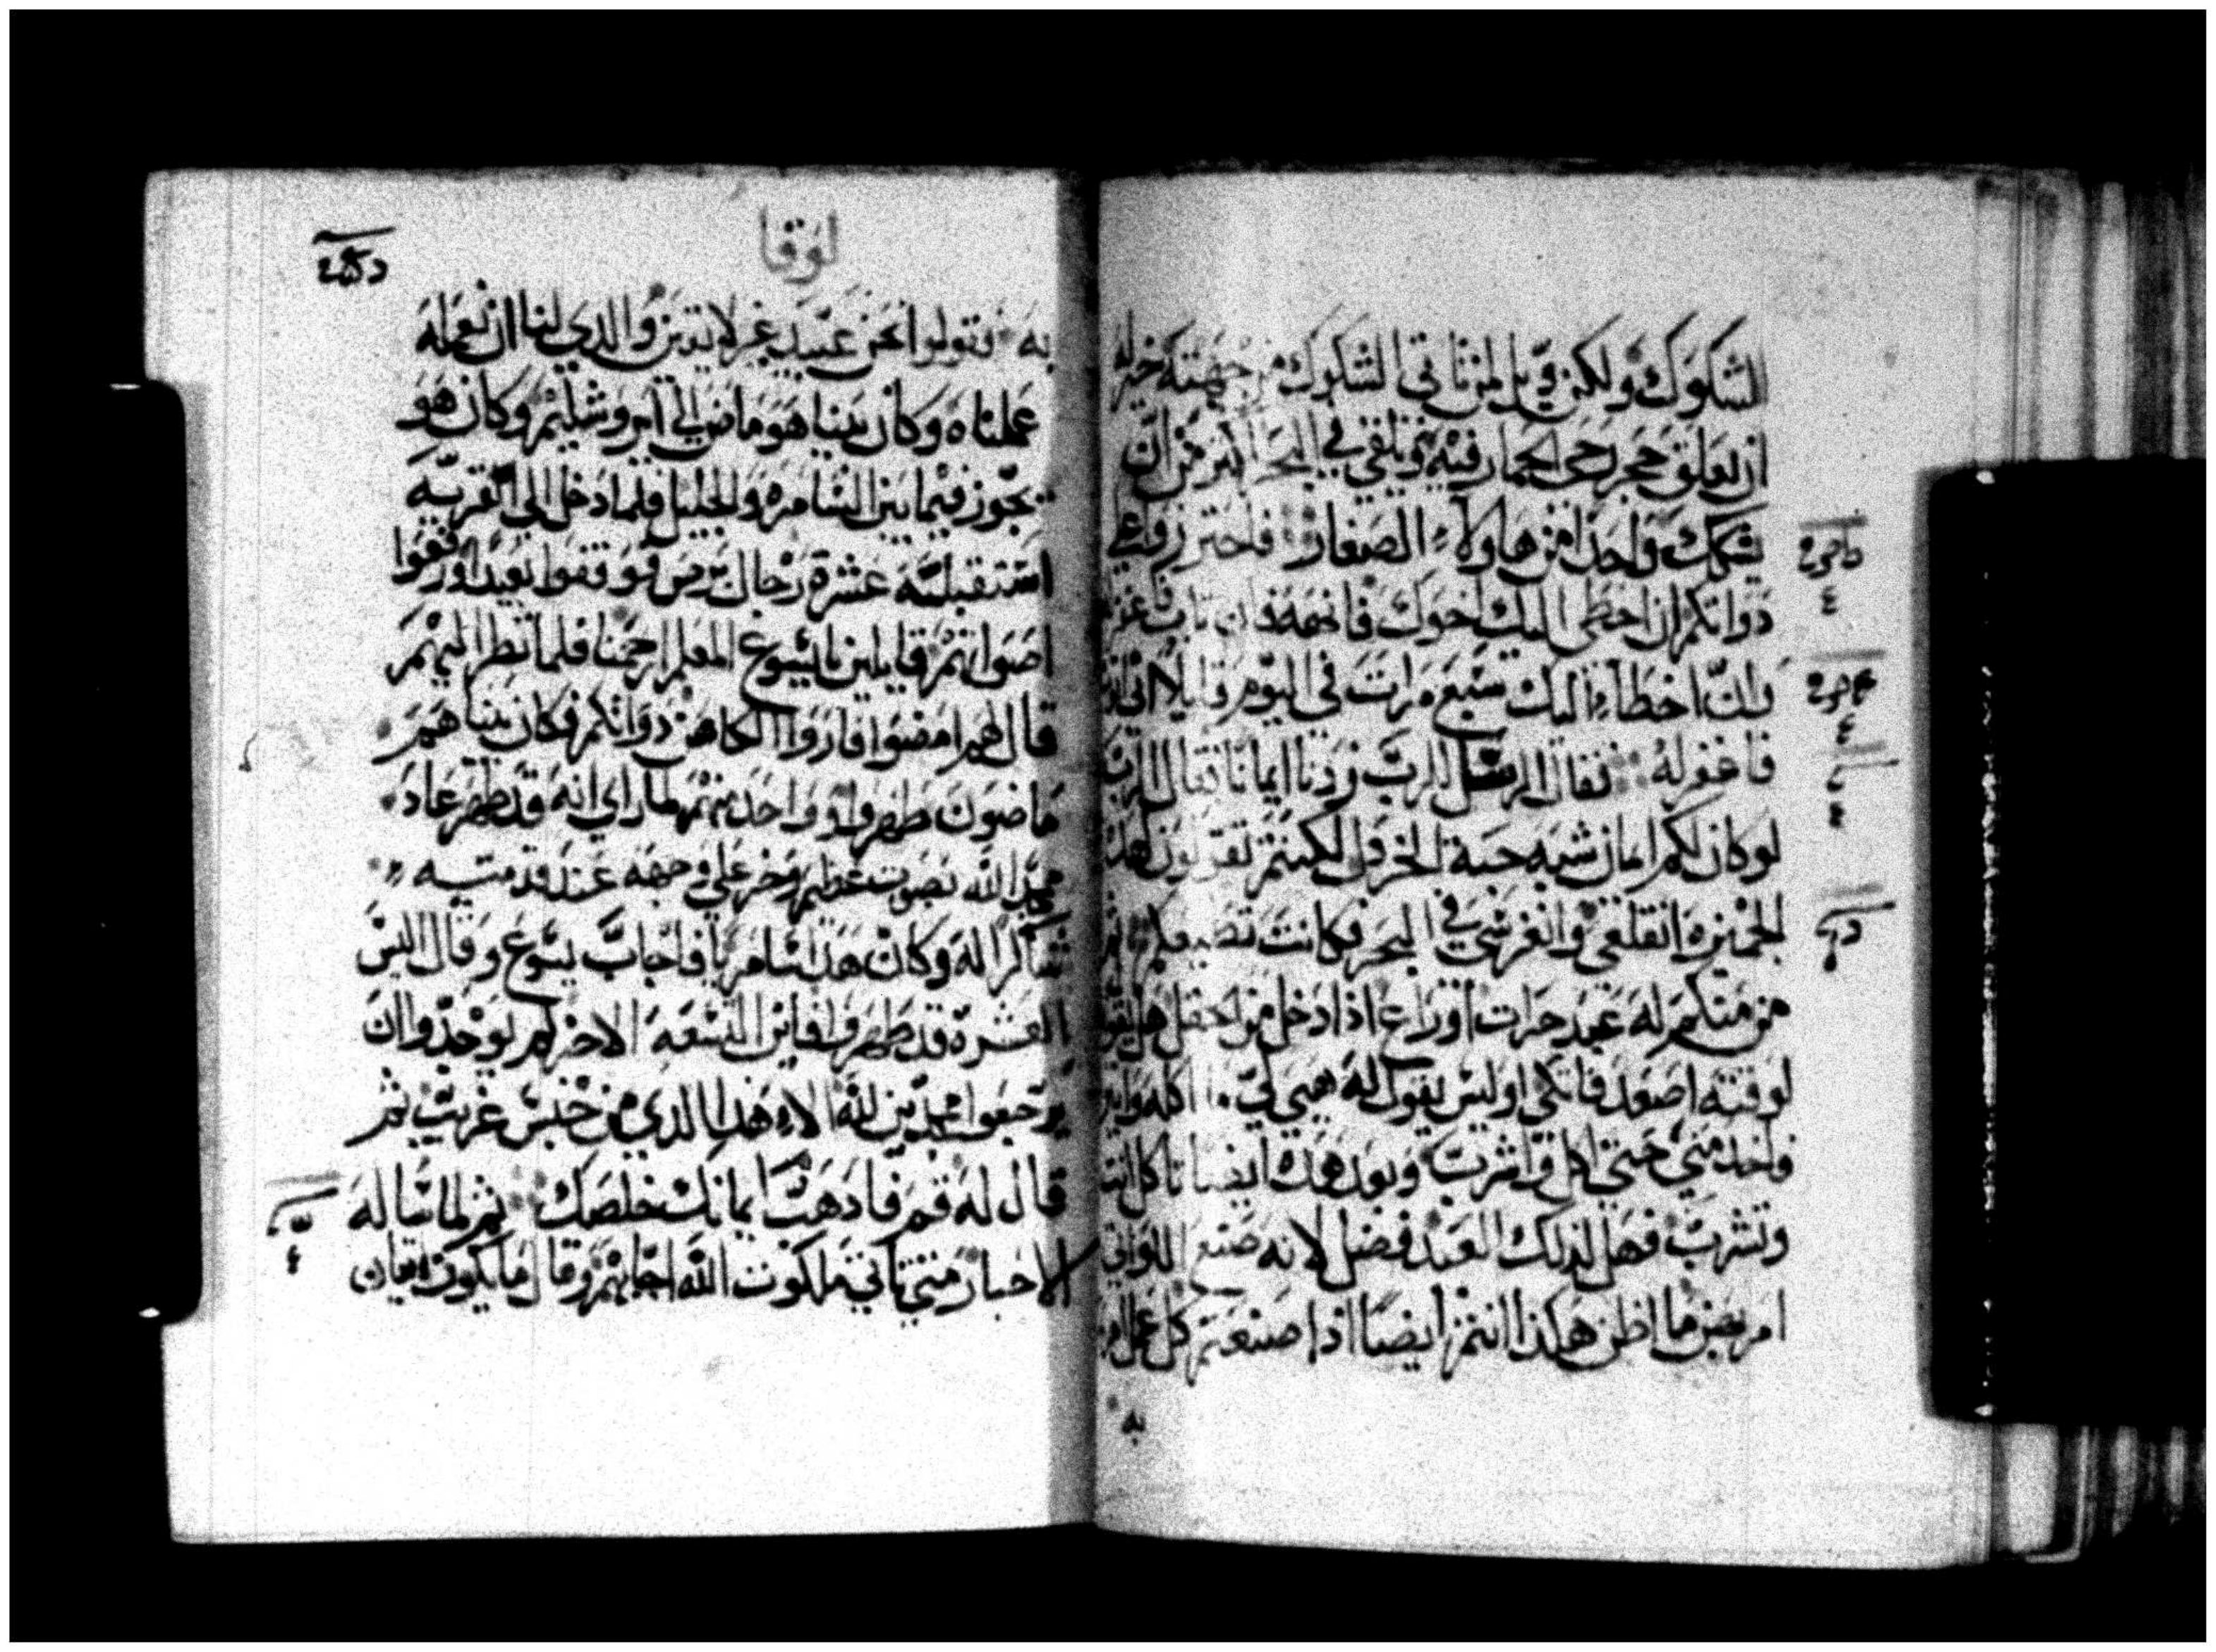 الشكوك ولكن ويل لمن تاتي الشكوك من جهته خير له
ان تعلق حجر رحى الحمار فيه ويلقي في البحر من ان
يشكك واحدا من هاولاء الصغار فاحترزوا علي
دواتكم ان اخطى اليك اخوك فانهه فان تاب فاغفر
له اخطاء اليك سبع مرات في اليوم قايلا اني
فاغفر له فقال الرسل للرب زدنا ايمانا فقال الرب
لو كان لكم ايمان شبه حبة الخردل لكنتم تقولون لهذه
الجميزه انقلعي وانغرسي في البحر فكانت
من منكم له عبد حرات او راع اذا دخل من الحقل هل يقول
لوقته اصعد فاتكي او ليس يقول له هيي لي ما اكله
واخدمني حتي اكل واشرب وبعد هده ايضا تاكل انت
وتشرب فهل لذلك العبد فضل لانه صنع اللواتي
امر بهن ما اظن هكذا انتم ايضا اذا صنعتم كل عمل امر
به
لوقا
به فقولوا نحن عبيد غير لايقين والدي لنا ان نعمله
عملناه وكان بينما هو ماض الي اورشليم وكان هو
يجوز فيما بين السامره والجليل فلما دخل الي القريه
استقبلته عشرة رجال برص فوقفوا بعيدا ورفعوا
اصواتهم قايلين يايسوع المعلم ارحمنا فلما نظر اليهم
قال لهم امضوا فاروا الكاهن دواتكم فكان بينما هم
ماضون طهروا وواحد منهم لما راي انه قد طهر عاد
ممجدا لله بصوت عظيم وخر علي وجهه عند قدميه
شاكرا له وكان هدا سامريا فاجاب يسوع وقال اليس
العشره قد طهروا فاين التسعه الاخر لم يوجدوا ان
يرجعوا ممجدين لله الا هدا الدي من جنس غريب ثم
قال له قم فادهب ايمانك خلصك ثم لما ساله
الاحبار متي تاتي ملكوت الله اجابهم وقال ما يكون اتيان